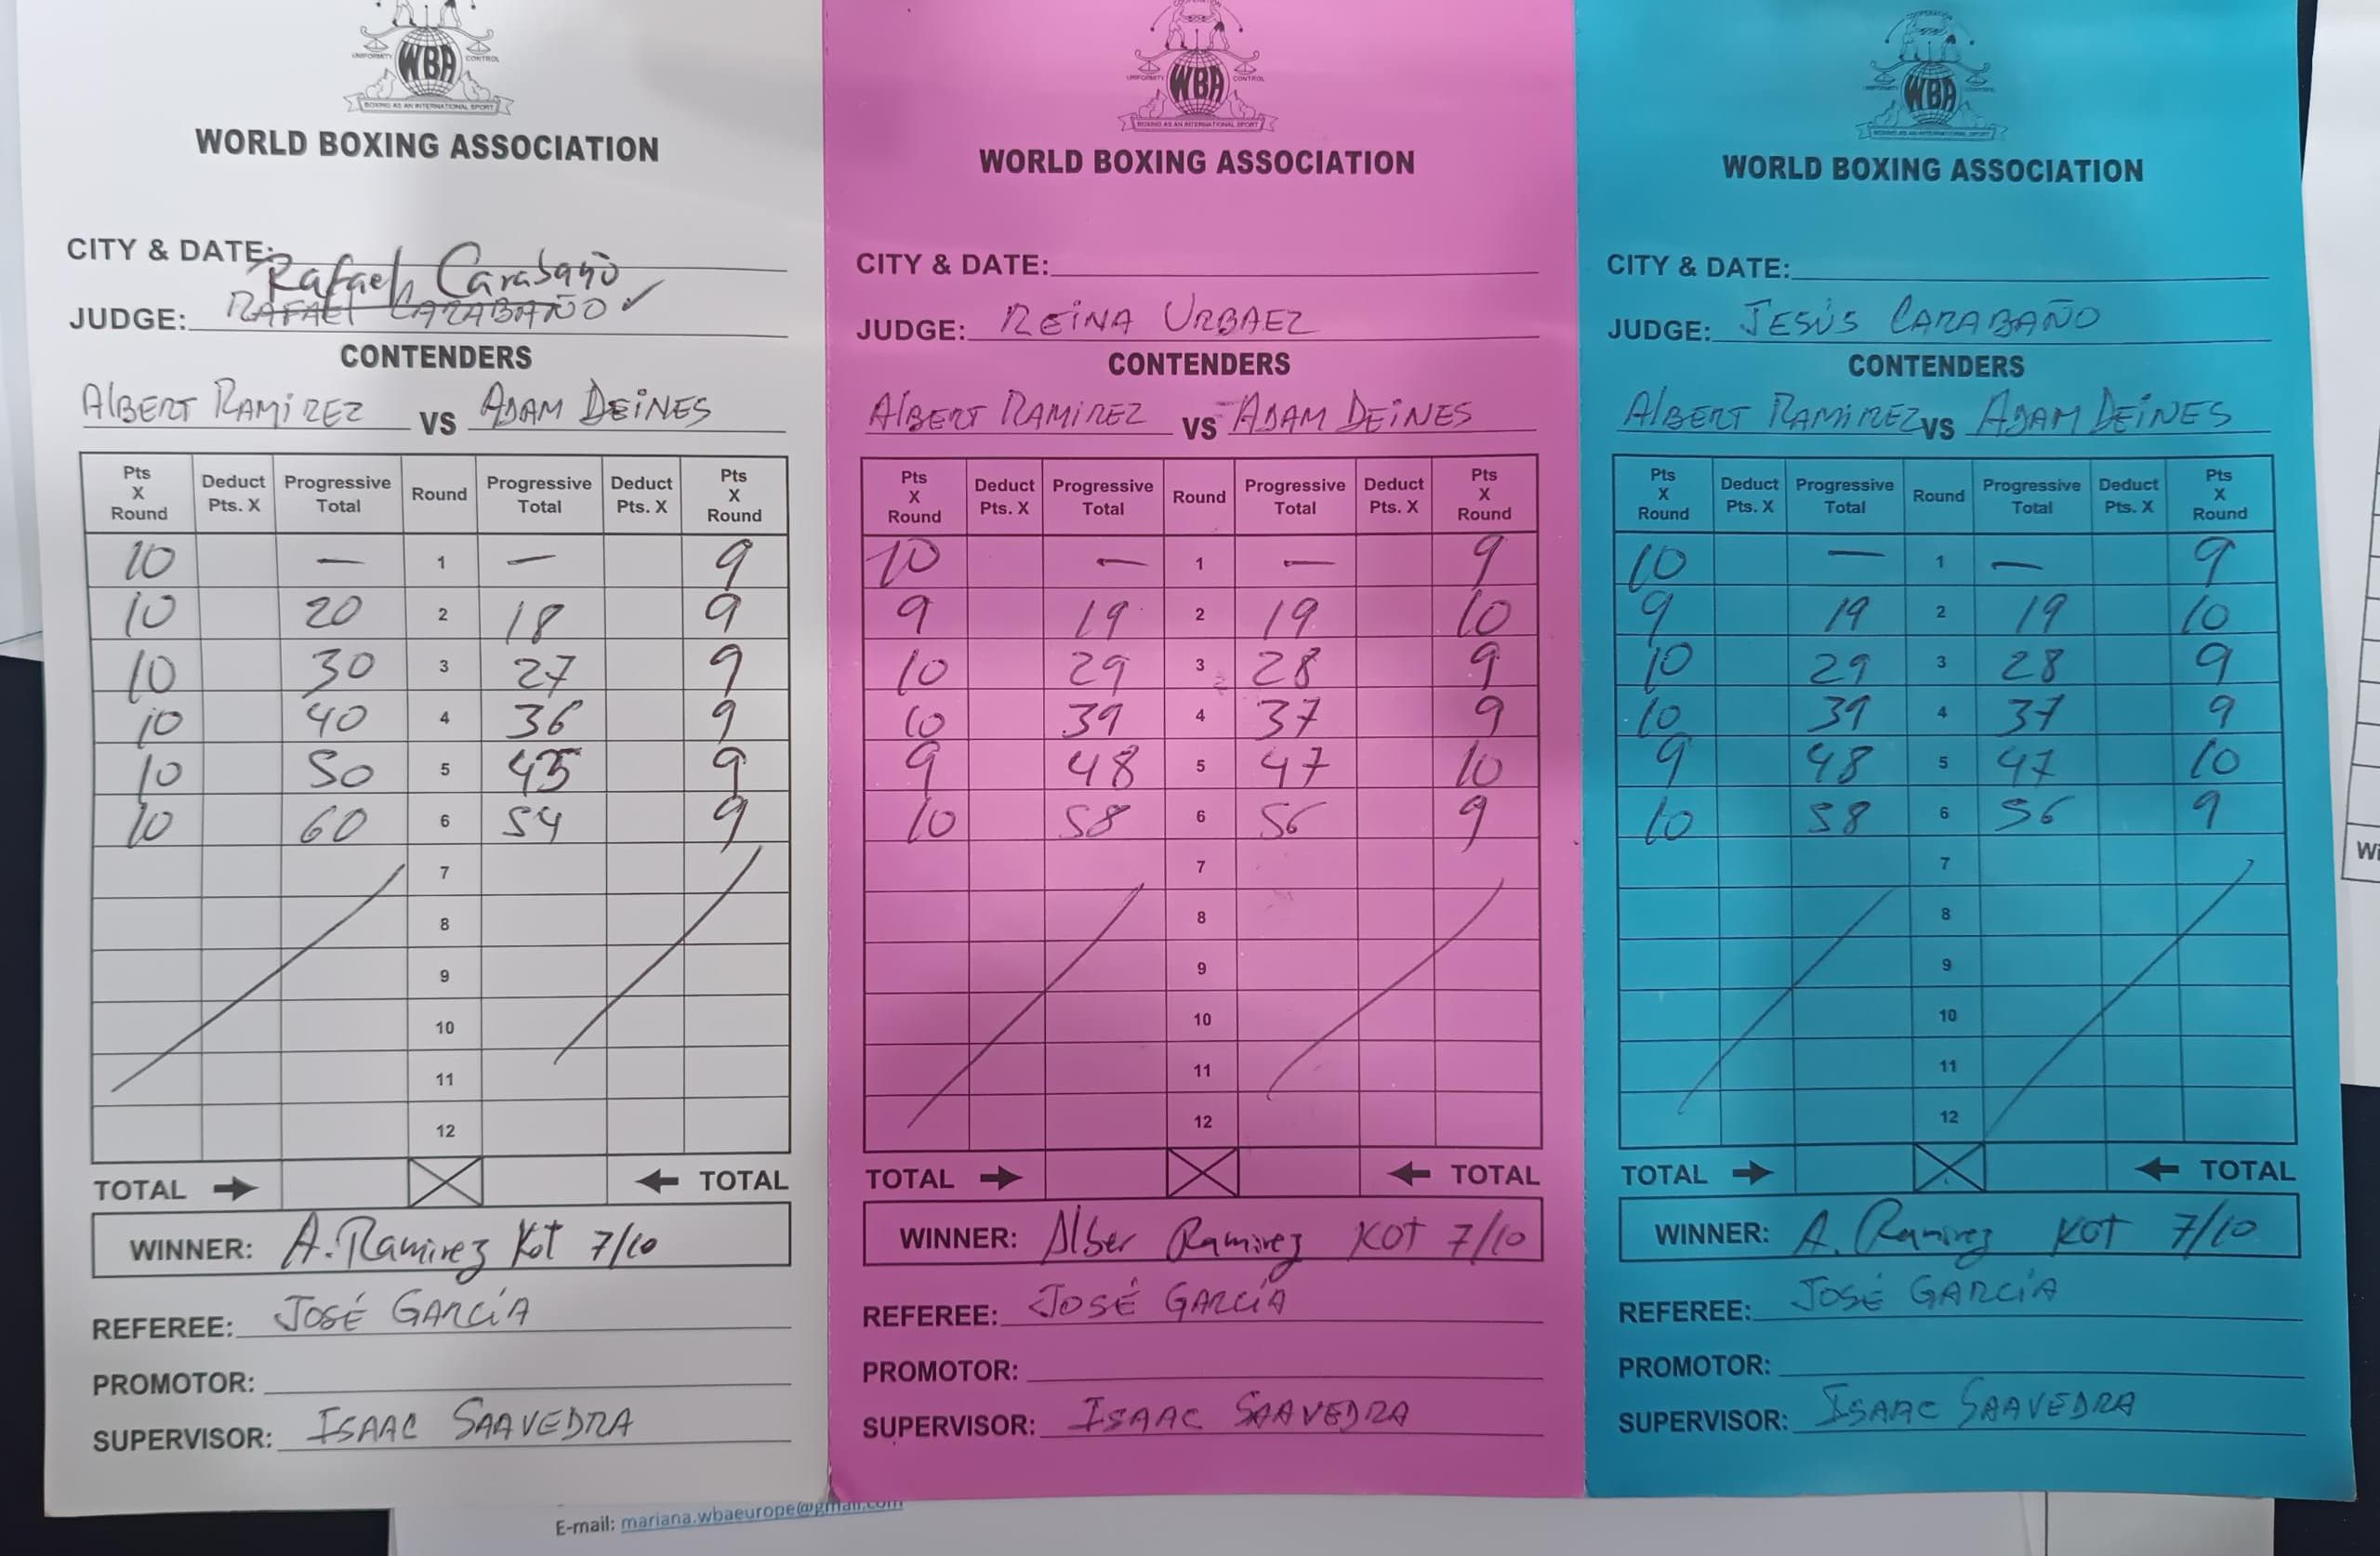 UNIFORMITY WBA CONTROL
BOXING AS AN INTERNATIONAL SPORT
WORLD BOXING ASSOCIATION
CITY & DATE:
Rafael Carabaño
JUDGE: RAFAEL CARABAÑO ✓
CONTENDERS
AlBERT RAMIREZ VS ADAM DEINES
Pts X Round Deduct Pts. X Progressive Total Round Progressive Total Deduct Pts. X Pts X Round
10 — 1 — 9
10 20 2 18 9
10 30 3 27 9
10 40 4 36 9
10 50 5 45 9
10 60 6 54 9
7
8
9
10
11
12
TOTAL → ← TOTAL
WINNER: A. Ramirez Kot 7/10
REFEREE: JOSÉ GARCÍA
PROMOTOR:
SUPERVISOR: ISAAC SAAVEDRA
UNIFORMITY WBA CONTROL
BOXING AS AN INTERNATIONAL SPORT
WORLD BOXING ASSOCIATION
CITY & DATE:
JUDGE: REINA URBAEZ
CONTENDERS
AlBERT RAMIREZ VS ADAM DEINES
Pts X Round Deduct Pts. X Progressive Total Round Progressive Total Deduct Pts. X Pts X Round
10 — 1 — 9
9 19 2 19 10
10 29 3 28 9
10 39 4 37 9
9 48 5 47 10
10 58 6 56 9
7
8
9
10
11
12
TOTAL → ← TOTAL
WINNER: Alber Ramirez KOT 7/10
REFEREE: JOSÉ GARCÍA
PROMOTOR:
SUPERVISOR: ISAAC SAAVEDRA
WBA
BOXING AS AN INTERNATIONAL SPORT
WORLD BOXING ASSOCIATION
CITY & DATE:
JUDGE: JESÚS CARABAÑO
CONTENDERS
AlBERT RAMIREZ VS ADAM DEINES
Pts X Round Deduct Pts. X Progressive Total Round Progressive Total Deduct Pts. X Pts X Round
10 — 1 — 9
9 19 2 19 10
10 29 3 28 9
10 39 4 37 9
9 48 5 47 10
10 58 6 56 9
7
8
9
10
11
12
TOTAL → ← TOTAL
WINNER: A. Ramirez KOT 7/10
REFEREE: JOSÉ GARCÍA
PROMOTOR:
SUPERVISOR: ISAAC SAAVEDRA
Wi
E-mail: mariana.wbaeurope@gmail.com